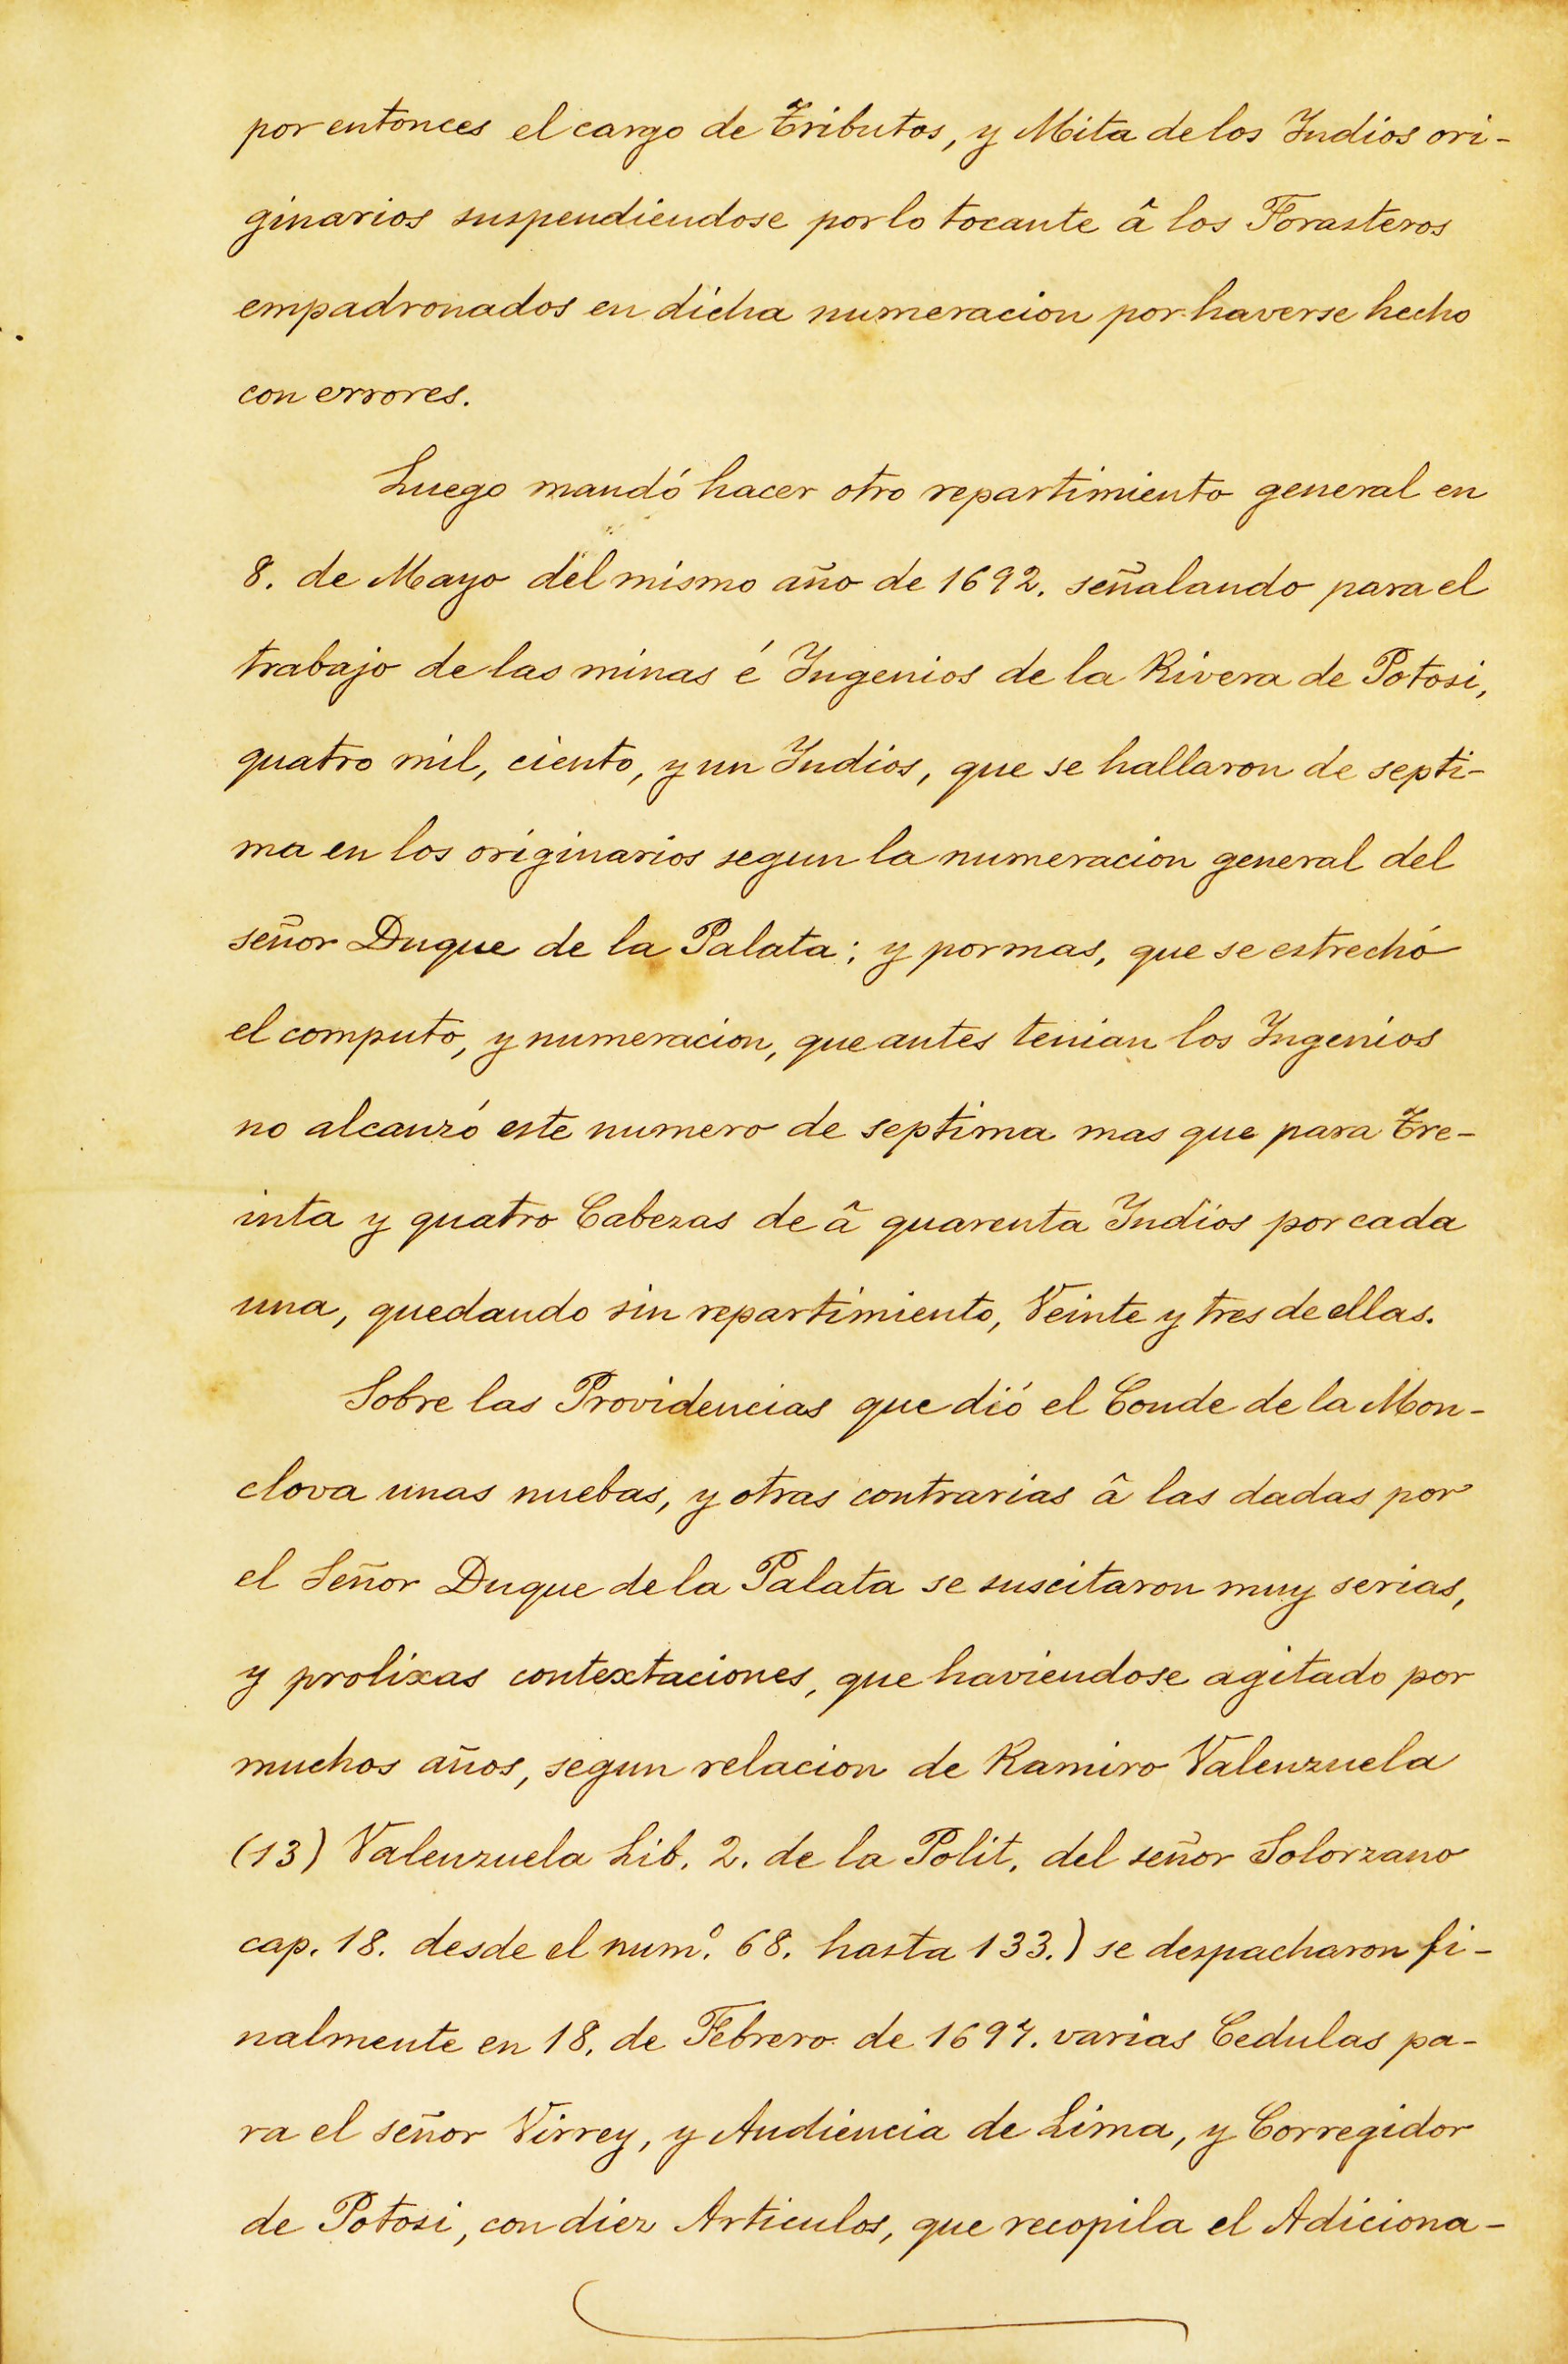 por entonces el cargo de Tributos, y Mita de los Indios ori-
ginarios suspendiendose por lo tocante â los Forasteros
empadronados en dicha numeracion por haverse hecho
con errores.
Luego mandó hacer otro repartimiento general en
8. de Mayo del mismo año de 1692. señalando para el
trabajo de las minas é Ingenios de la Rivera de Potosi,
quatro mil, ciento, y un Indios, que se hallaron de septi-
ma en los originarios segun la numeracion general del
señor Duque de la Palata; y por mas, que se estrechó
el computo, y numeracion, que antes tenian los Ingenios
no alcanzó este numero de septima mas que para Tre-
inta y quatro Cabezas de â quarenta Indios por cada
una, quedando sin repartimiento, Veinte y tres de ellas.
Sobre las Providencias que dió el Conde de la Mon-
clova unas nuebas, y otras contrarias â las dadas por
el Señor Duque de la Palata se suscitaron muy serias,
y prolixas contextaciones, que haviendose agitado por
muchos años, segun relacion de Ramiro Valenzuela
(13) Valenzuela Lib. 2. de la Polit. del señor Solorzano
cap. 18. desde el num.º 68. hasta 133.) se despacharon fi-
nalmente en 18. de Febrero de 1697. varias Cedulas pa-
ra el señor Virrey, y Audiencia de Lima, y Corregidor
de Potosi, con diez Articulos, que recopila el Adiciona-